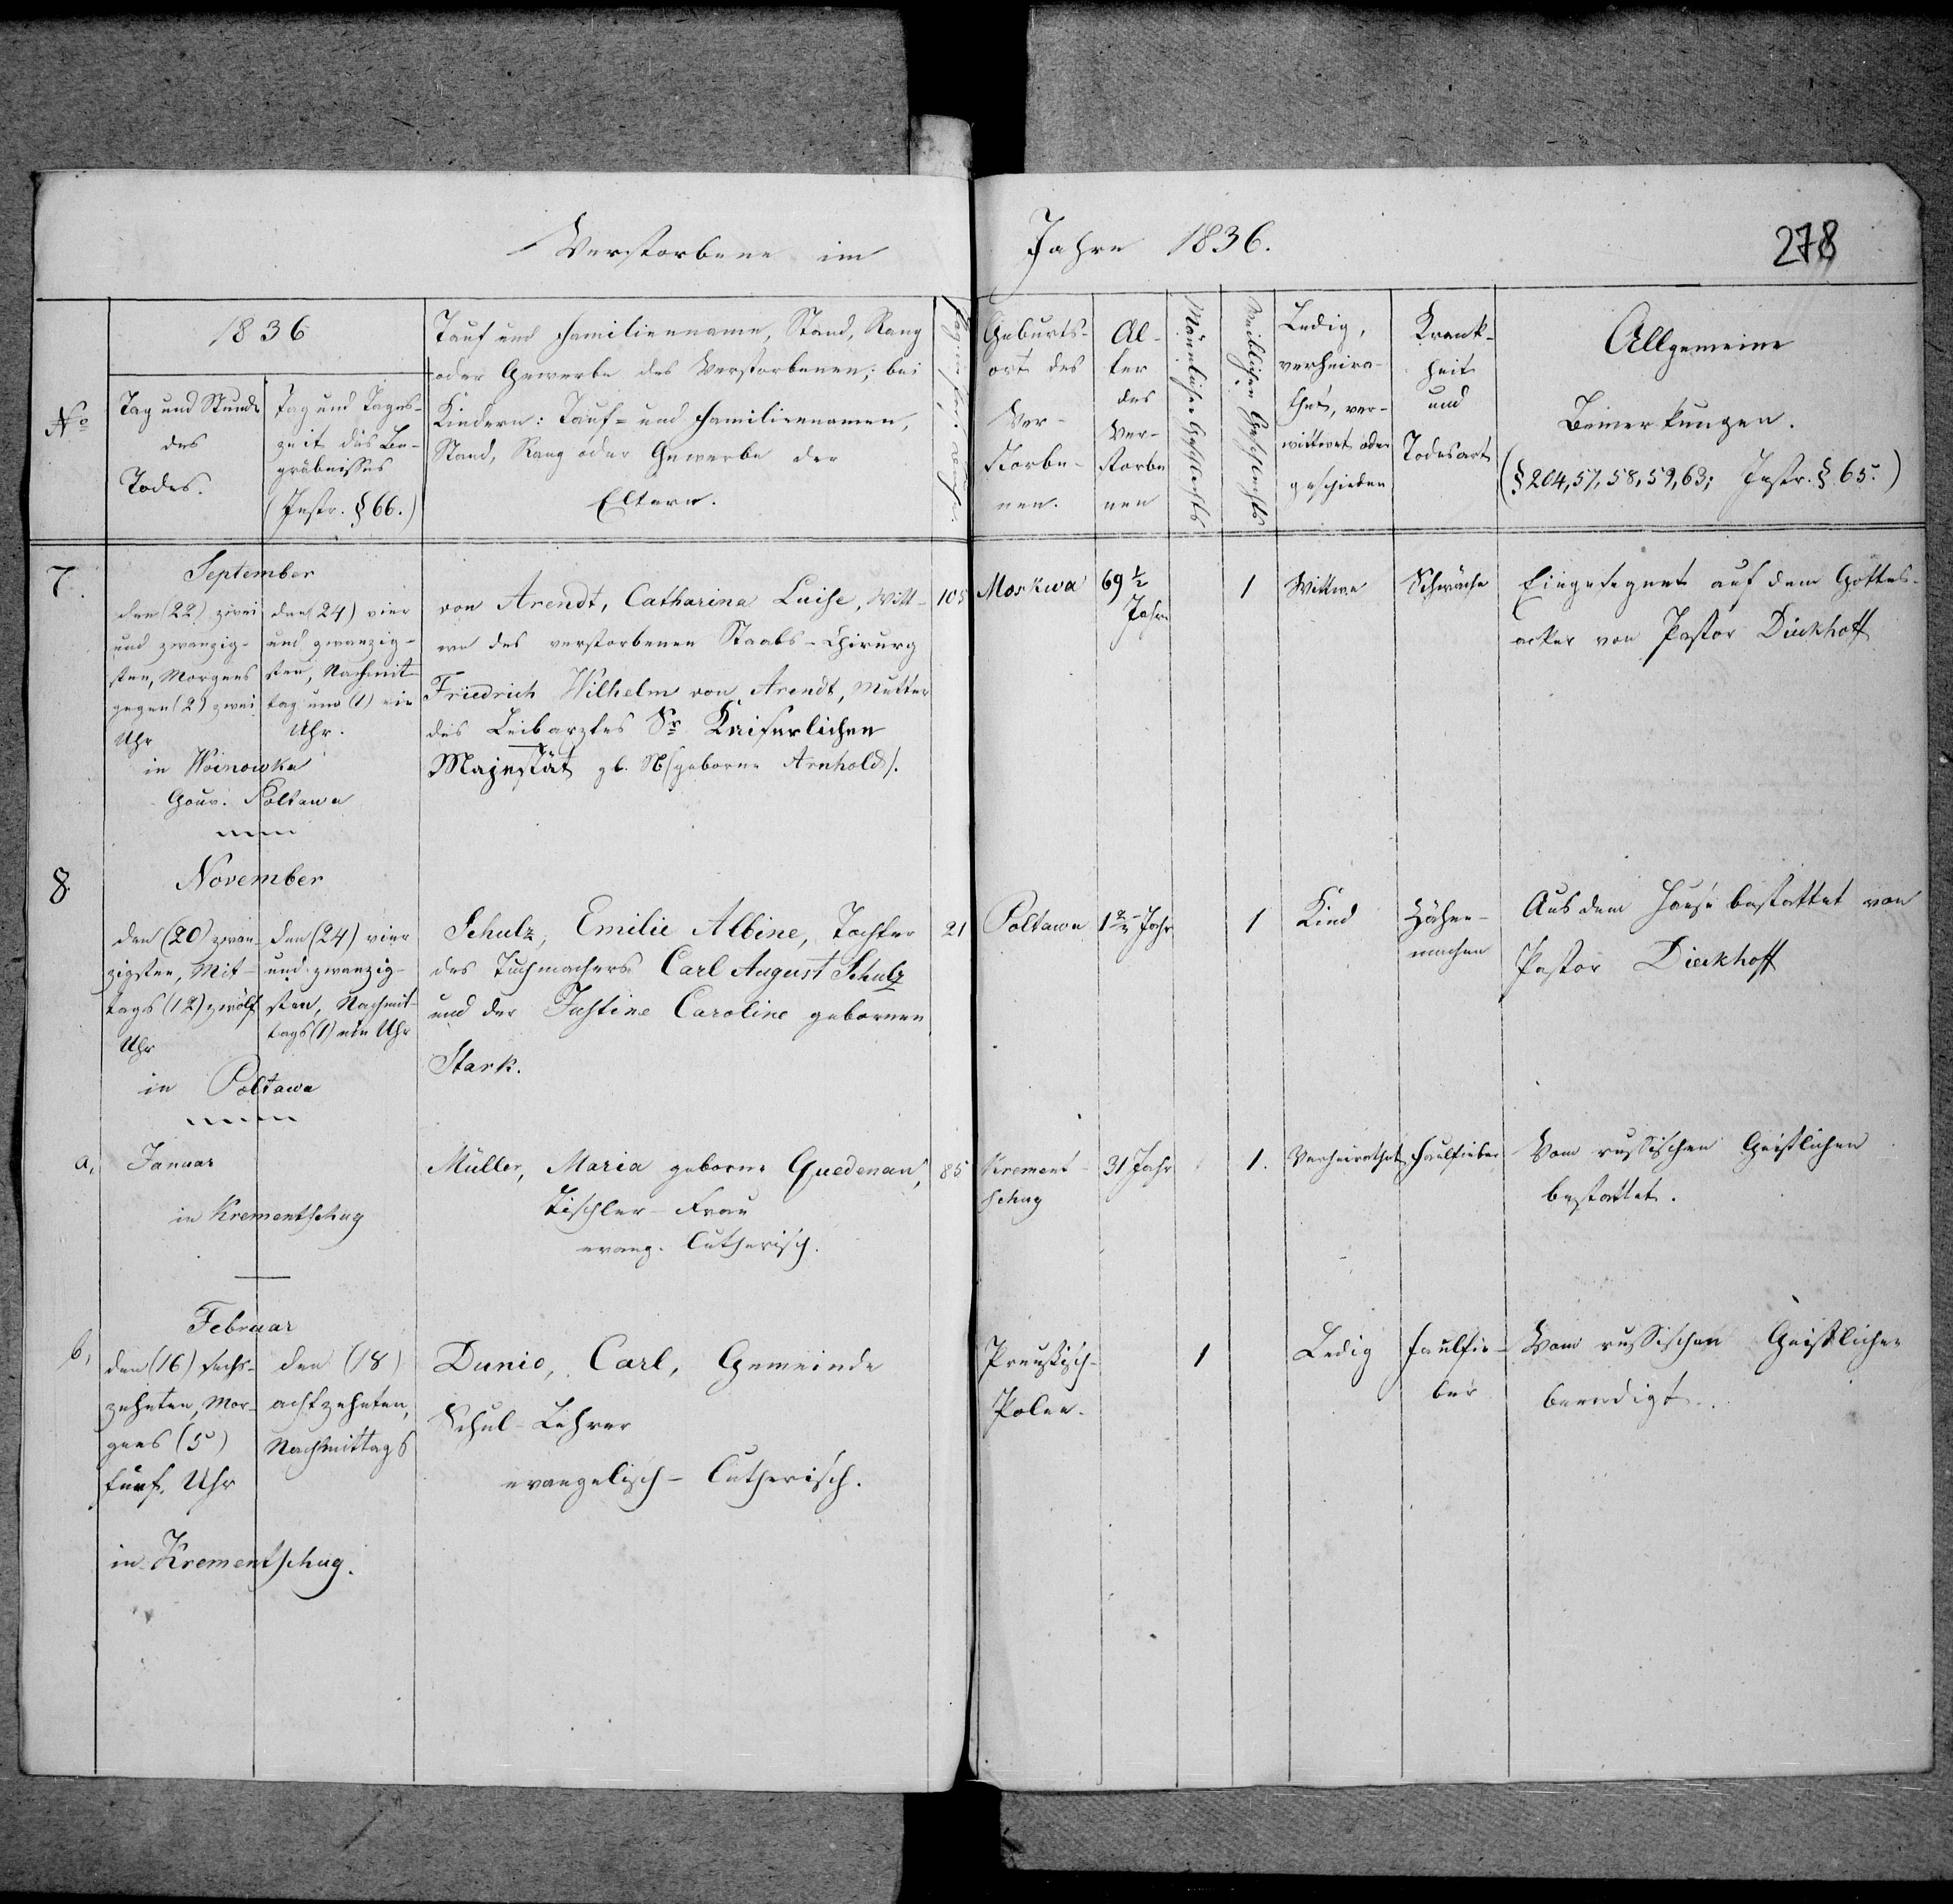 Verstorbene im Jahre 1836.
278
No
1836
Tag und Stunde
des
Todes.
Tag und Tages-
zeit des Be-
gräbnisses
(Instr. § 66.)
Tauf und Familienname, Stand, Rang
oder Gewerbe des Verstorbenen; bei
Kindern: Tauf- und Familiennamen,
Stand, Rang oder Gewerbe der
Eltern.
Geburts-
ort des
Ver-
storbe-
nen.
Al-
ter
des
Ver-
storbe
nen
Männlichen Geschlechts
Weiblichen Geschlechts
Ledig,
verheira-
thet, ver-
wittwet oder
geschieden
Krank-
heit
und
Todesart
Allgemeine
Bemerkungen.
(§ 204, 57, 58, 59, 63; Instr. § 65.)
7.
September
den (22) zwei
und zwanzig-
sten, Morgens
gegen (2) zwei
Uhr
den (24) vier
und zwanzig-
sten, Nachmit
tag um (1) ein
Uhr.
in Woinowka
Gouv. Poltawa
von Arendt, Catharina Luise, Witt-
we des verstorbenen Staabs-Chirurg
Friedrich Wilhelm von Arendt, Mutter
des Leibarztes Sr Kaiserlichen
Majestät (geborne Arnhold).
105
Moskwa
69 1/2
Jahre
1
Wittwe
Schwäche
Eingesegnet auf dem Gottes-
acker von Pastor Dieckhoff
8.
November
den (20) zwan-
zigsten, Mit-
tags (12) zwölf
Uhr
den (24) vier
und zwanzig-
sten, Nachmit
tags (1) ein Uhr
in Poltawa
Schulz, Emilie Albine, Tochter
des Tuchmachers Carl August Schulz
und der Justine Caroline gebornen
Stark.
21
Poltawa
Jahr
1
Kind
Zähne-
machen
Aus dem Hause bestattet von
Pastor Dieckhoff
a,
Januar
in Krementschug
Müller, Maria geborne Quedenau,
Tischler-Frau
evang. lutherisch.
85
Krement-
schug
31 Jahr
1.
Verheirathet
Faulfieber
Vom russischen Geistlichen
bestattet.
b,
Februar
den (16) sechs-
zehnten, Mor-
gens (5)
fünf Uhr
den (18)
achtzehnten,
Nachmittags
in Krementschug.
Dunio, Carl, Gemeinde
Schul-Lehrer
evangelisch-lutherisch.
Preußisch-
Polen.
1
Ledig
Faulfie-
ber
Vom russischen Geistlichen
beerdigt.